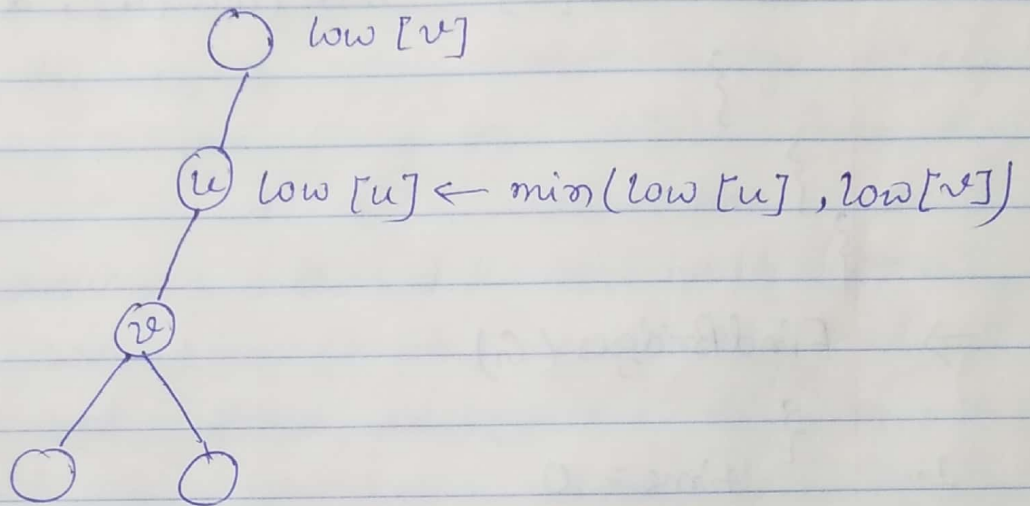 low [v]
u low [u] ← min(low [u], low[v])
v